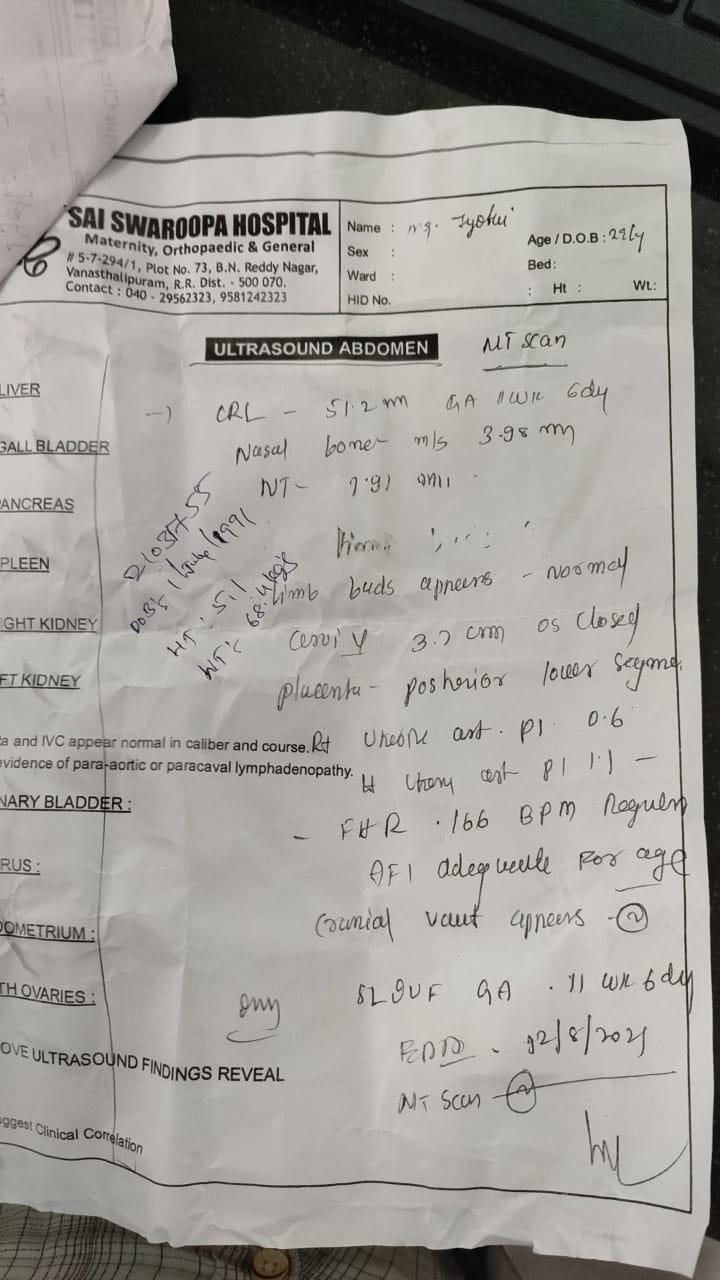 SAI SWAROOPA HOSPITAL
Maternity, Orthopaedic & General
# 5-7-294/1, Plot No. 73, B.N. Reddy Nagar,
Vanasthalipuram, R.R. Dist. - 500 070.
Contact : 040 - 29562323, 9581242323
Name :
Sex :
Ward :
HID No.
Age / D.O.B :
Bed:
: Ht : Wt:
ULTRASOUND ABDOMEN
NT scan
LIVER
CRL - 51.2 mm GA 11wk 6dy
GALL BLADDER
Nasal bone m/s 3.98 mm
ANCREAS
NT-
PLEEN
Limb buds appears - normal
IGHT KIDNEY
3.7 cm os closed
FT KIDNEY
placenta - posterior lower segme
a and IVC appear normal in caliber and course.
Rt Uterine art. PI 0.6
evidence of para-aortic or paracaval lymphadenopathy.
Lt art PI 1.1 -
NARY BLADDER :
- FHR . 166 BPM Regular
RUS :
AFI adequate for age
Cranial vault appears - N
DOMETRIUM :
SLIUF GA . 11 wk 6dy
TH OVARIES :
OVE ULTRASOUND FINDINGS REVEAL
NT Scan - N
uggest Clinical Correlation
HT : 5.1